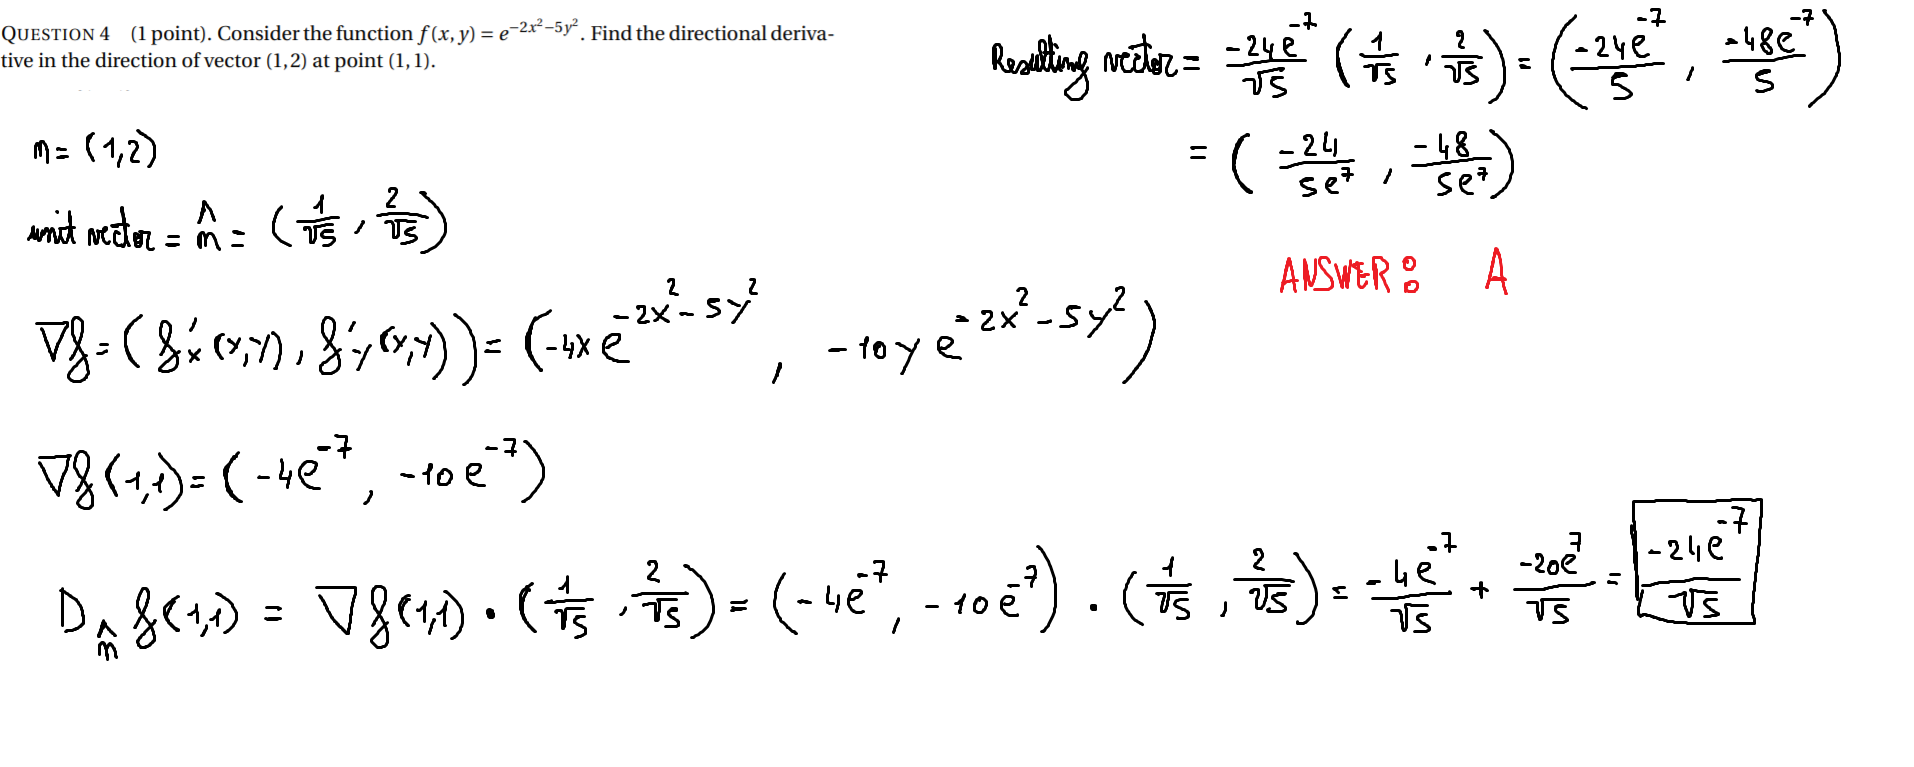 QUESTION 4 (1 point). Consider the function f(x, y) = e^{-2x²-5y²}. Find the directional deriva-
tive in the direction of vector (1,2) at point (1,1).
n = (1,2)
unit vector = n̂ = (1/√5 , 2/√5)
∇f = (f'x (x,y) , f'y (x,y)) = (-4x e^{-2x²-5y²} , -10y e^{-2x²-5y²})
∇f(1,1) = (-4e^{-7} , -10e^{-7})
D_n̂ f(1,1) = ∇f(1,1) • (1/√5 , 2/√5) = (-4e^{-7} , -10e^{-7}) • (1/√5 , 2/√5) = -4e^{-7}/√5 + -20e^{7}/√5 = -24e^{-7}/√5
Resulting vector = -24e^{-7}/√5 (1/√5 , 2/√5) = (-24e^{-7}/5 , -48e^{-7}/5)
= (-24/5e^{7} , -48/5e^{7})
ANSWER: A